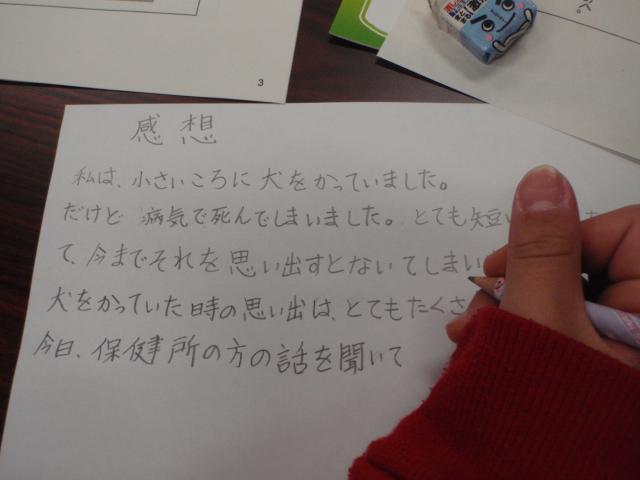 3
べ。
感想
私は、小さいころに犬をかっていました。
だけど 病気で死んでしまいました。とても短い
て、今までそれを思い出すとないてしまい
犬をかっていた時の思い出は、とてもたくさ
今日、保健所の方の話を聞いて